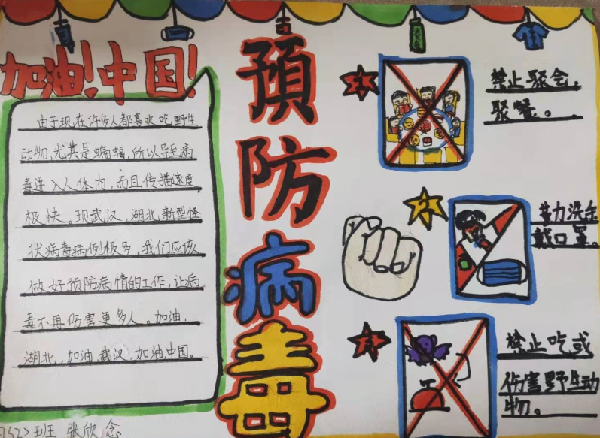 加油！中国！
由于现在许多人都喜欢吃野生
动物，尤其是蝙蝠，所以导致病
毒进入人体内，而且传播速度
极快。现武汉，湖北，新型冠
状病毒病例极多，我们应该
做好预防疫情的工作，让病
毒不再伤害更多人。加油，
湖北，加油武汉，加油中国。
班 张欣念
預防病毒
1
禁止聚会，
聚餐。
2
努力洗手
戴口罩。
3
禁止吃或
伤害野生动
物。